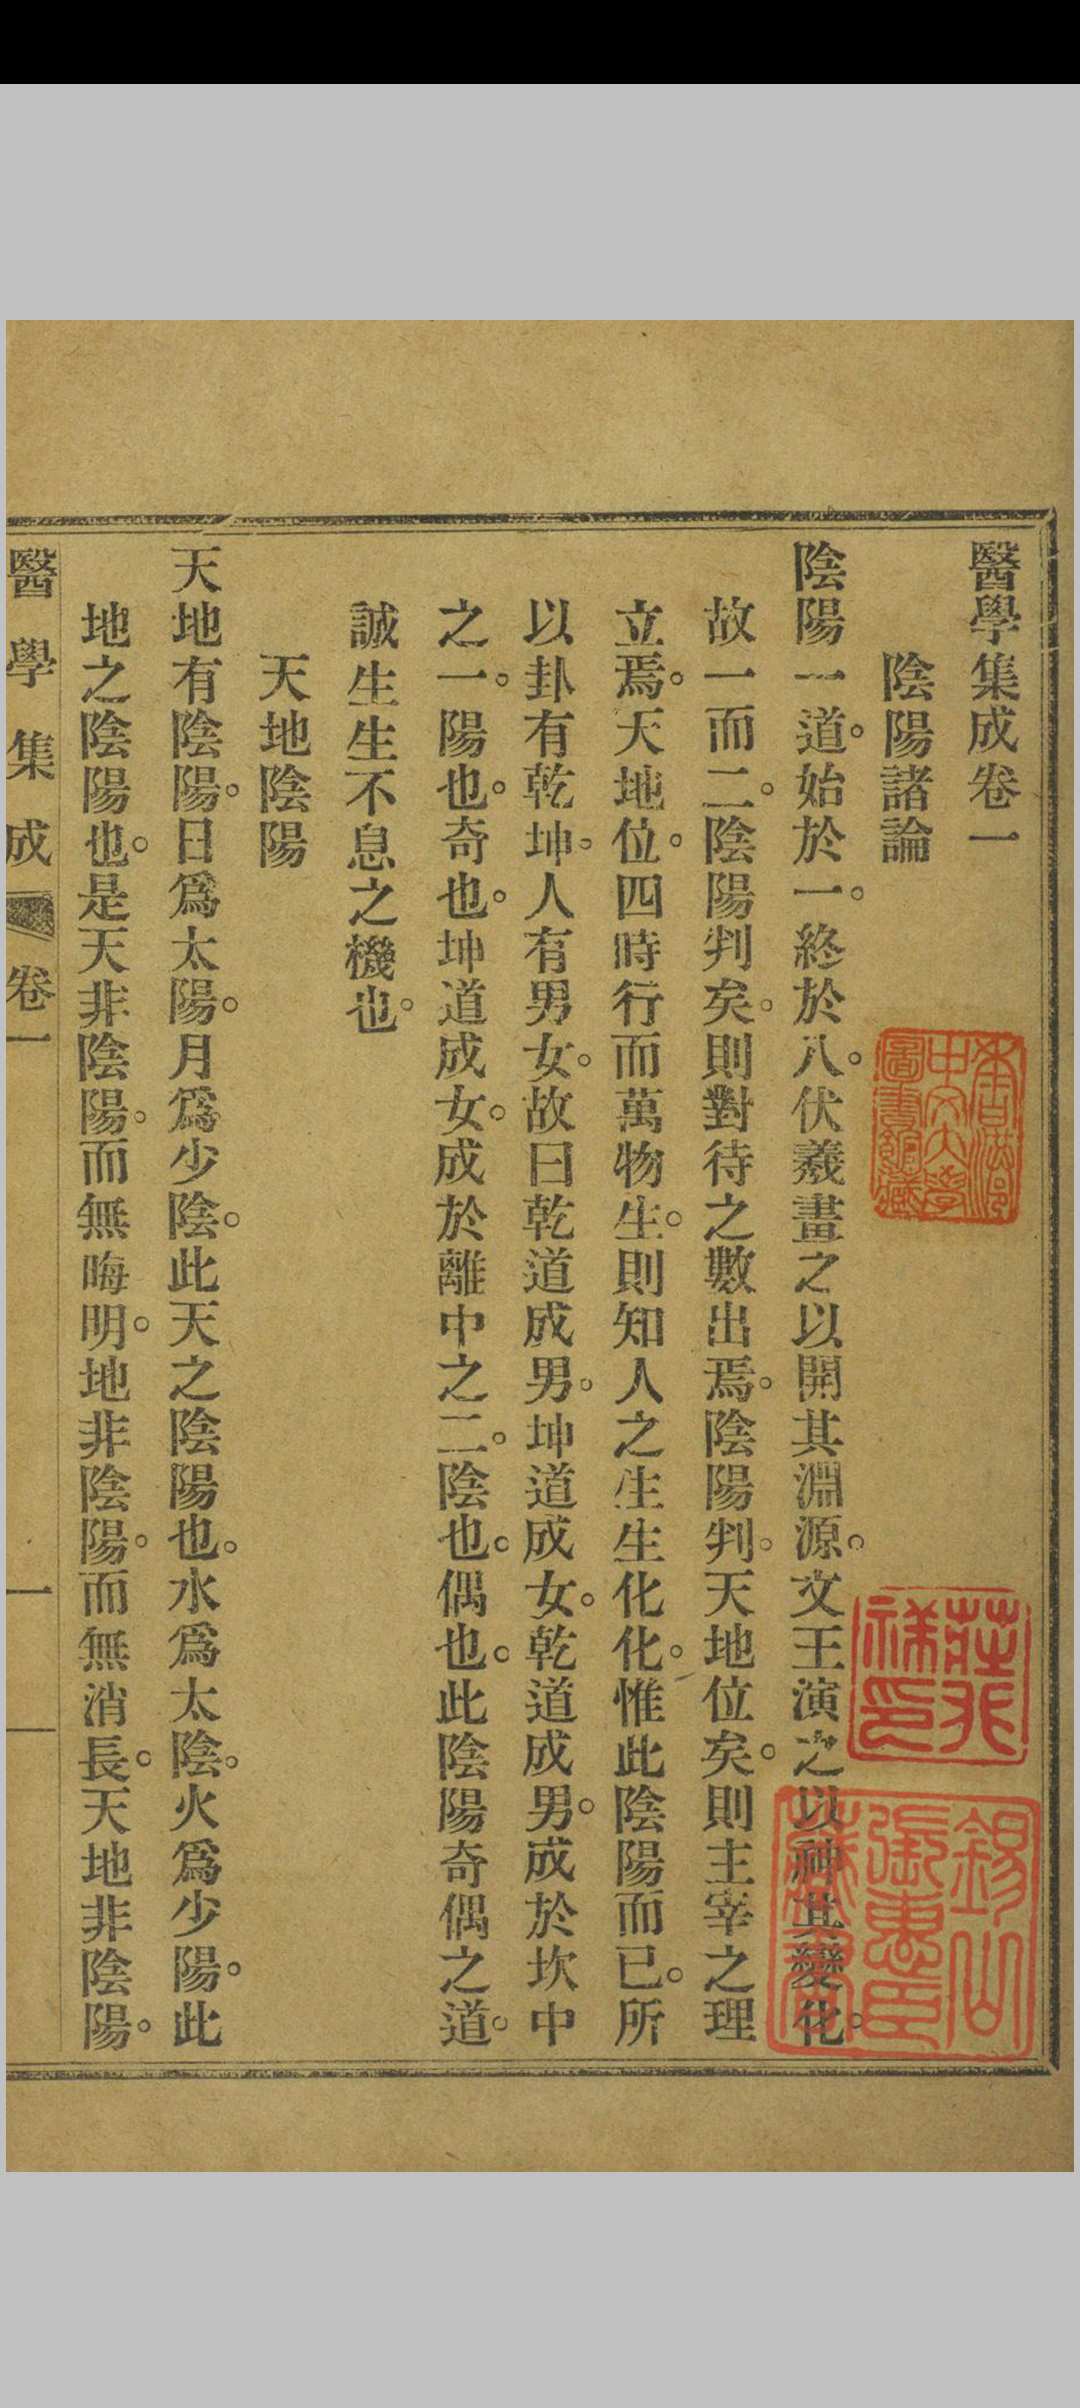 醫學集成卷一
陰陽諸論
陰陽一道。始於一。終於八。伏羲畫之以開其淵源。文王演之以神其變化。
故一而二。陰陽判矣。則對待之數出焉。陰陽判。天地位矣。則主宰之理
立焉。天地位。四時行而萬物生。則知人之生生化化。惟此陰陽而已。所
以卦有乾坤。人有男女。故曰乾道成男。坤道成女。乾道成男。成於坎中
之一。陽也。奇也。坤道成女。成於離中之二。陰也。偶也。此陰陽奇偶之道。
誠生生不息之機也。
天地陰陽
天地有陰陽。日爲太陽。月爲少陰。此天之陰陽也。水爲太陰。火爲少陽。此
地之陰陽也。是天非陰陽。而無晦明。地非陰陽。而無消長。天地非陰陽。
醫學集成 卷一 一
香港中文大學圖書館藏
錫山張惠臣藏書